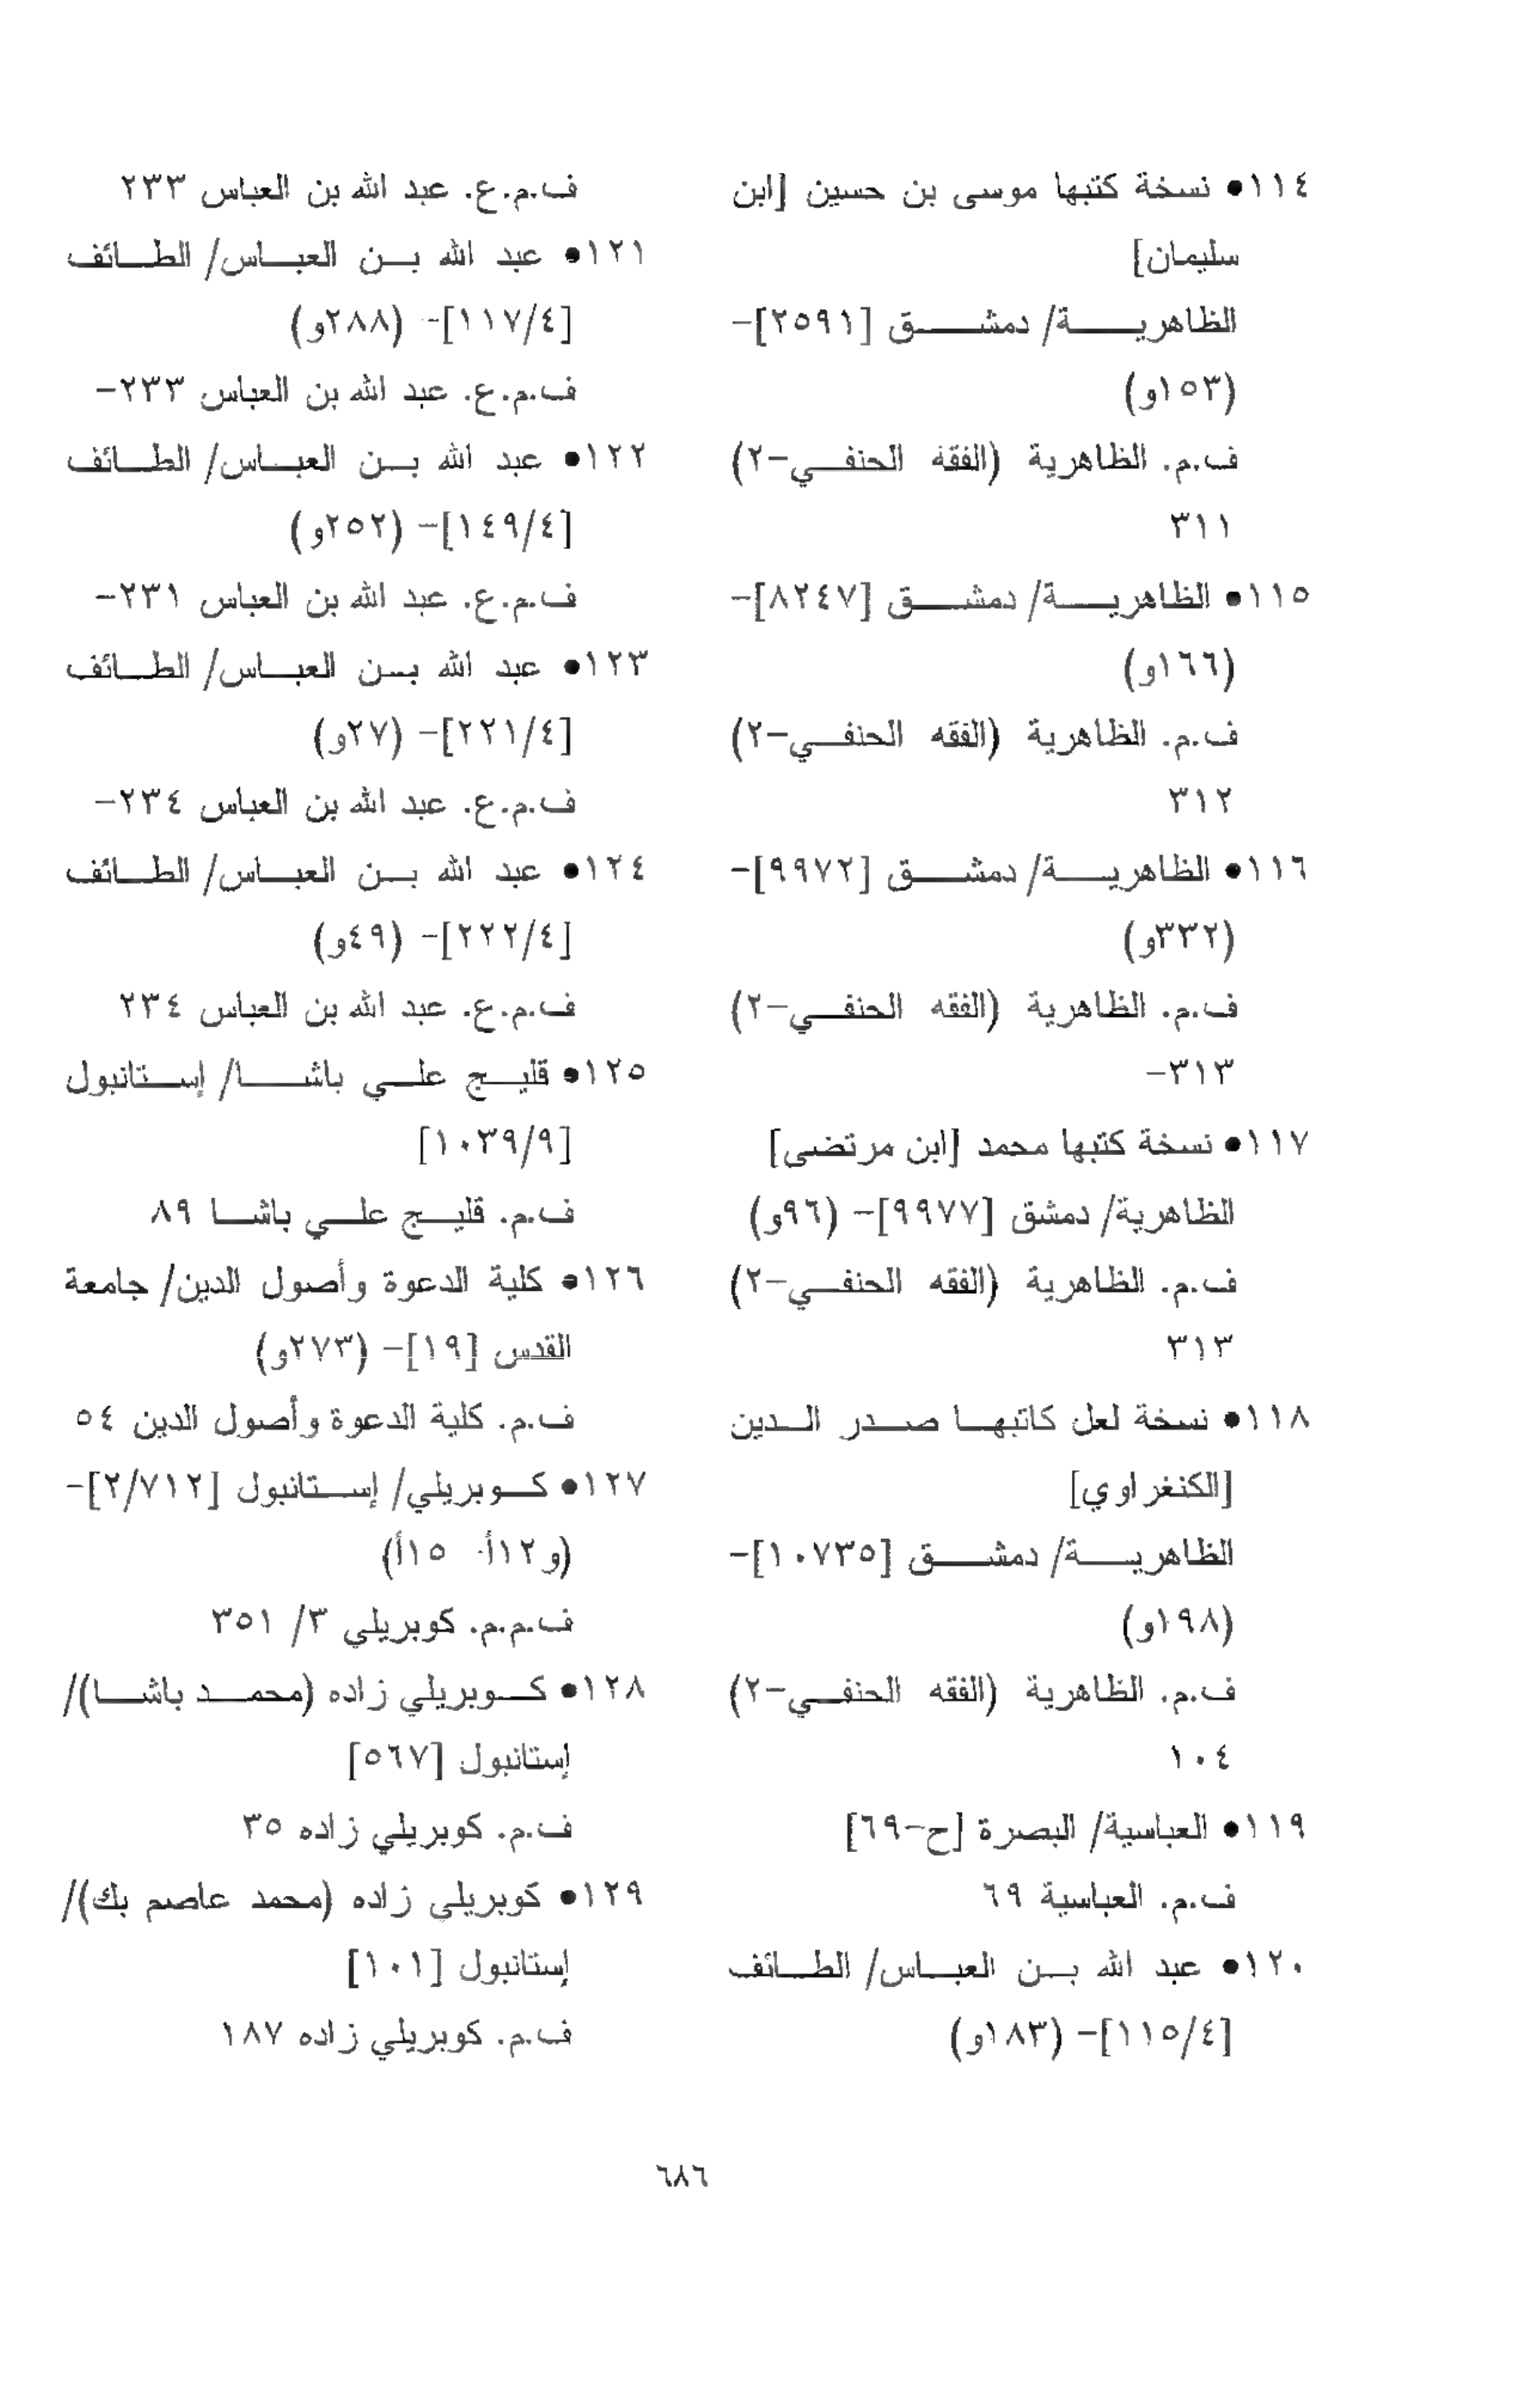 ١١٤• نسخة كتبها موسى بن حسين [ابن
سليمان]
الظاهرية/ دمشق [٢٥٩١]-
(١٥٣و)
ف.م. الظاهرية (الفقه الحنفي-٢)
٣١١
١١٥• الظاهرية/ دمشق [٨٢٤٧]-
(١٦٦و)
ف.م. الظاهرية (الفقه الحنفي-٢)
٣١٢
١١٦• الظاهرية/ دمشق [٩٩٧٢]-
(٣٣٢و)
ف.م. الظاهرية (الفقه الحنفي-٢)
٣١٣-
١١٧• نسخة كتبها محمد [ابن مرتضى]
الظاهرية/ دمشق [٩٩٧٧]- (٩٦و)
ف.م. الظاهرية (الفقه الحنفي-٢)
٣١٣
١١٨• نسخة لعل كاتبها صدر الدين
[الكنغراوي]
الظاهرية/ دمشق [١٠٧٣٥]-
(١٩٨و)
ف.م. الظاهرية (الفقه الحنفي-٢)
١٠٤
١١٩• العباسية/ البصرة [ح-٦٩]
ف.م. العباسية ٦٩
١٢٠• عبد الله بن العباس/ الطائف
[١١٥/٤]- (١٨٣و)
ف.م.ع. عبد الله بن العباس ٢٣٣
١٢١• عبد الله بن العباس/ الطائف
[١١٧/٤]- (٢٨٨و)
ف.م.ع. عبد الله بن العباس ٢٣٣-
١٢٢• عبد الله بن العباس/ الطائف
[١٤٩/٤]- (٢٥٢و)
ف.م.ع. عبد الله بن العباس ٢٣١-
١٢٣• عبد الله بن العباس/ الطائف
[٢٢١/٤]- (٢٧و)
ف.م.ع. عبد الله بن العباس ٢٣٤-
١٢٤• عبد الله بن العباس/ الطائف
[٢٢٢/٤]- (٤٩و)
ف.م.ع. عبد الله بن العباس ٢٣٤
١٢٥• قليج علي باشا/ إستانبول
[١٠٣٩/٩]
ف.م. قليج علي باشا ٨٩
١٢٦• كلية الدعوة وأصول الدين/ جامعة
القدس [١٩]- (٢٧٣و)
ف.م. كلية الدعوة وأصول الدين ٥٤
١٢٧• كوبريلي/ إستانبول [٢/٧١٢]-
(و١٢أ- ١٥أ)
ف.م.م. كوبريلي ٣/ ٣٥١
١٢٨• كوبريلي زاده (محمد باشا)/
إستانبول [٥٦٧]
ف.م. كوبريلي زاده ٣٥
١٢٩• كوبريلي زاده (محمد عاصم بك)/
إستانبول [١٠١]
ف.م. كوبريلي زاده ١٨٧
٦٨٦